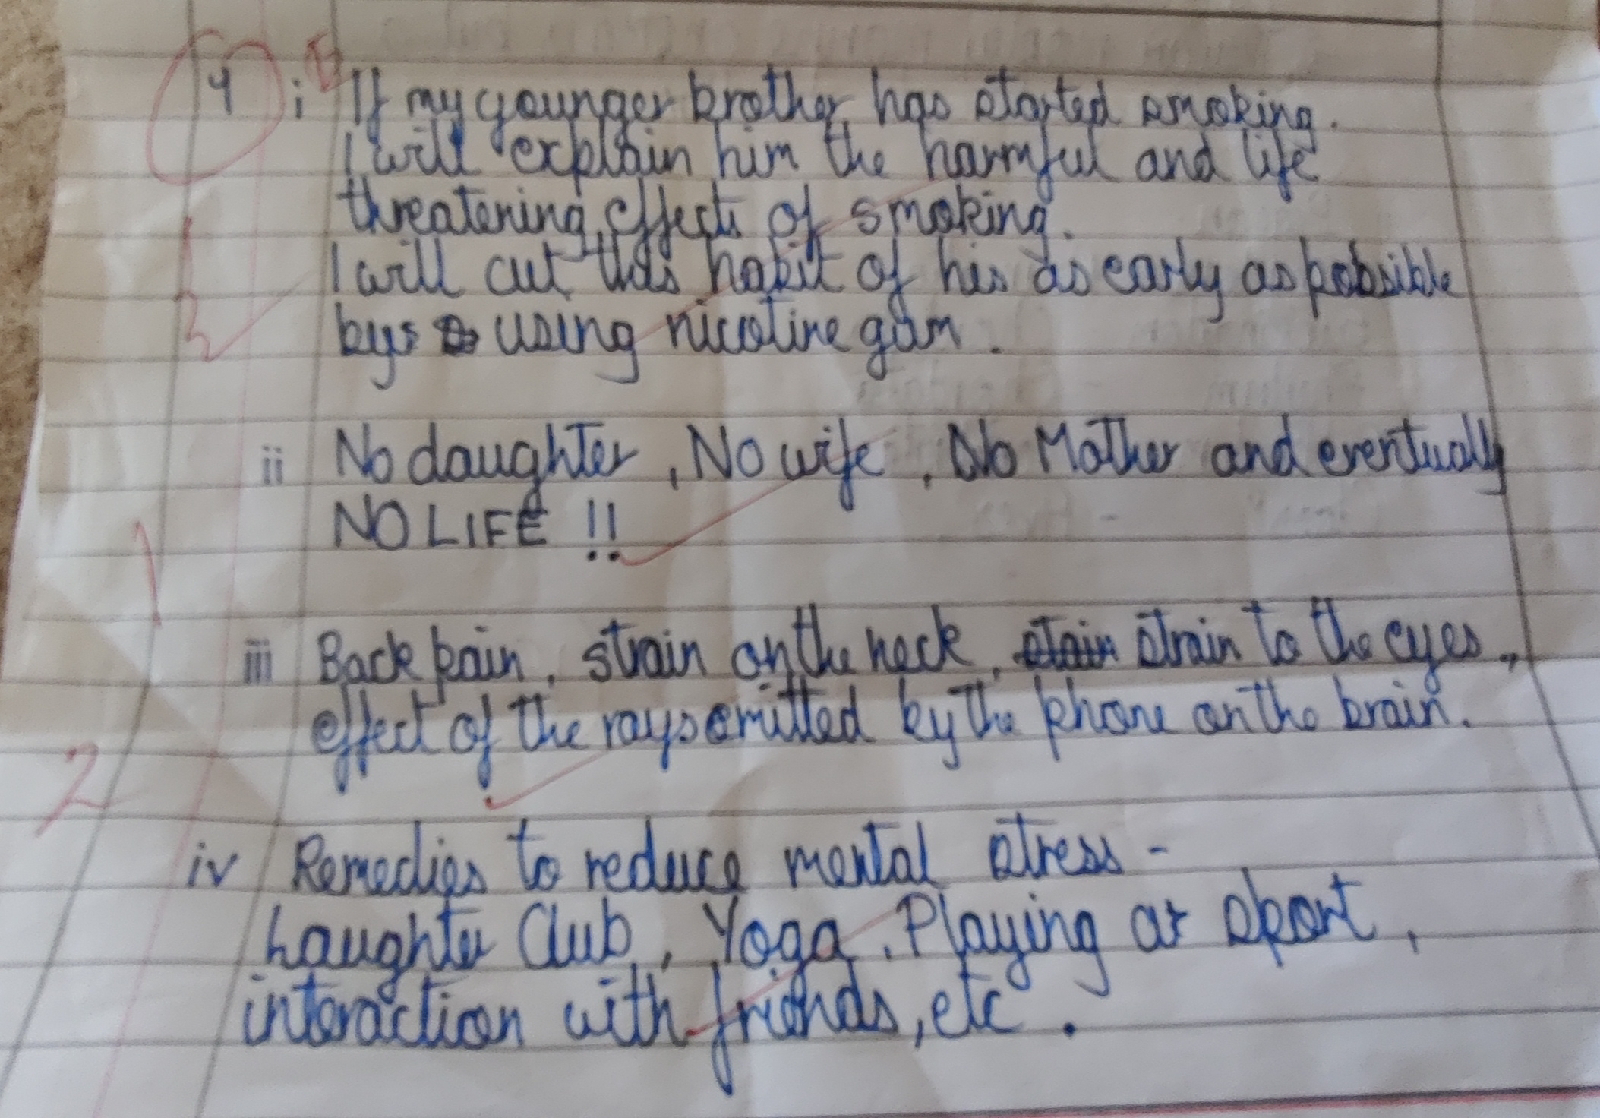 4 i If my younger brother has started smoking.
I will explain him the harmful and life
threatening effects of smoking.
I will cut this habit of his as early as possible
by using nicotine gum.
ii No daughter, No wife, No Mother and eventually
NO LIFE !!
1
iii Back pain, strain on the neck, strain to the eyes,
effect of the rays emitted by the phone on the brain.
2
iv Remedies to reduce mental stress -
Laughter Club, Yoga, Playing a sport,
interaction with friends, etc.